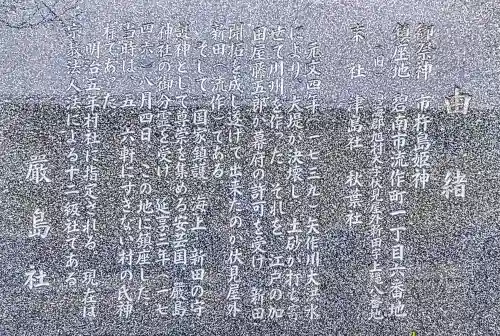 由緒
御祭神 市杵島姫神
鎮座地 碧南市流作町一丁目六番地
(旧)
末社 津島社 秋葉社
元文四年(一七三九)矢作川大洪水
により、大堤が決壊し、土砂が打ち寄
せて川州を作った。それを、江戸の加
田屋藤五郎が幕府の許可を受け、新田
開拓を成し遂げて出来たのが伏見屋外
新田(流作)である。
そして、国家鎮護、海上、新田の守
護神として尊崇を集める安芸国、厳島
神社の御分霊を受け、延享三年(一七
四六)八月四日、この地に鎮座した。
当時は、五、六軒にすぎない村の氏神
様であった。
明治五年村社に指定される。現在は
宗教法人法による十二級社である。
厳島社